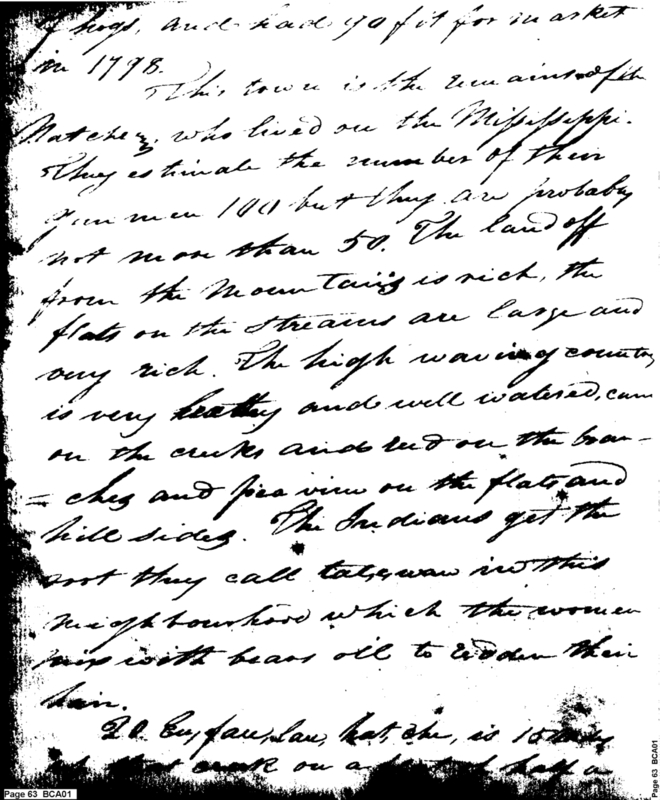 of hogs, and had 90 fit for market
in 1798.
This town is the remains of the
Natchez, who lived on the Mississippi.
They estimate the number of their
gun men 100 but they are probably
not more than 50. The land off
from the Mountains is rich, the
flats on the streams are large and
very rich. The high waving country
is very healthy and well watered, cane
on the creeks and reed on the bran=
=ches and pea vine on the flats and
hill sides. The Indians get the
root they call tale,waw in this
neighbourhood which the women
mix with bears oil to redden their
hair.
20. Eu,fau,lau, hat,che, is 15 miles
up that creek on a half a
Page 63 BCA01
Page 63 BCA01